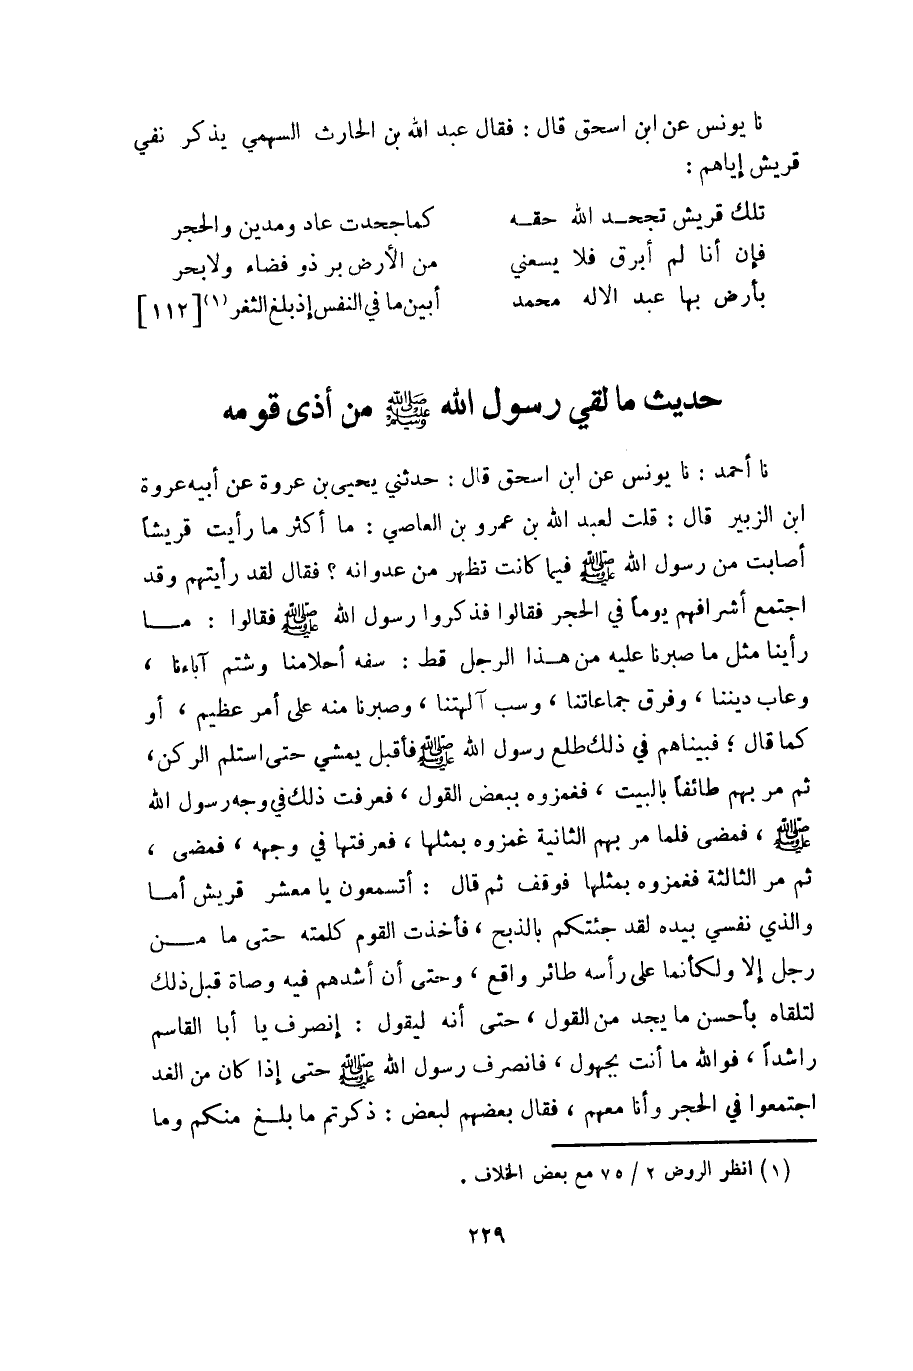 نا يونس عن ابن اسحق قال : فقال عبد الله بن الحارث السهمي يذكر نفي
قريش إياهم :
تلك قريش تجحــد الله حقــه كما جحدت عاد ومدين والحجر
فإن أنا لم أبرق فلا يسعني من الأرض بر ذو فضاء ولا بحر
بأرض بها عبد الاله محمد أبين ما في النفس إذ بلغ الثغر (١) [١١٢]
حديث ما لقي رسول الله ﷺ من أذى قومه
نا أحمد : نا يونس عن ابن اسحق قال : حدثني يحيى بن عروة عن أبيه عروة
ابن الزبير قال : قلت لعبد الله بن عمرو بن العاصي : ما أكثر ما رأيت قريشاً
أصابت من رسول الله ﷺ فيما كانت تظهر من عدوانه ؟ فقال لقد رأيتهم وقد
اجتمع أشرافهم يوماً في الحجر فقالوا فذكروا رسول الله ﷺ فقالوا : مــــا
رأينا مثل ما صبرنا عليه من هــذا الرجل قط : سفه أحلامنا وشتم آباءنا ،
وعاب ديننا ، وفرق جماعاتنا ، وسب آلهتنا ، وصبرنا منه على أمر عظيم ، أو
كما قال ؛ فبيناهم في ذلك طلع رسول الله ﷺ فأقبل يمشي حتى استلم الركن ،
ثم مر بهم طائفاً بالبيت ، فغمزوه ببعض القول ، فعرفت ذلك في وجه رسول الله
ﷺ ، فمضى فلما مر بهم الثانية غمزوه بمثلها ، فعرفتها في وجهه ، فمضى ،
ثم مر الثالثة فغمزوه بمثلها فوقف ثم قال : أتسمعون يا معشر قريش أمــا
والذي نفسي بيده لقد جئتكم بالذبح ، فأخذت القوم كلمته حتى ما مــــن
رجل إلا ولكأنما على رأسه طائر واقع ، وحتى أن أشدهم فيه وصاة قبل ذلك
لتلقاه بأحسن ما يجد من القول ، حتى أنه ليقول : إنصرف يا أبا القاسم
راشداً ، فوالله ما أنت بجهول ، فانصرف رسول الله ﷺ حتى إذا كان من الغد
اجتمعوا في الحجر وأنا معهم ، فقال بعضهم لبعض : ذكرتم ما بلــغ منكم وما
(١) انظر الروض ٢ / ٧٥ مع بعض الخلاف .
٢٢٩